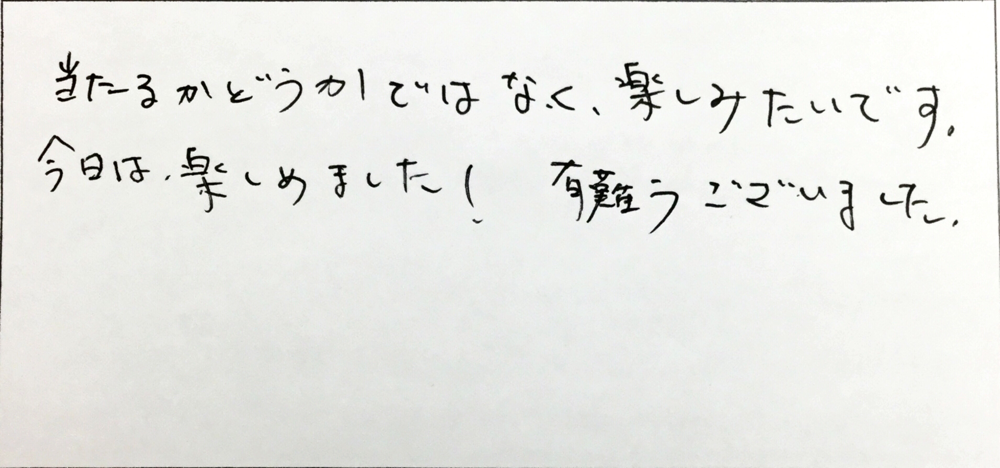 当たるかどうかではなく、楽しみたいです。
今日は、楽しめました! 有難うございました。